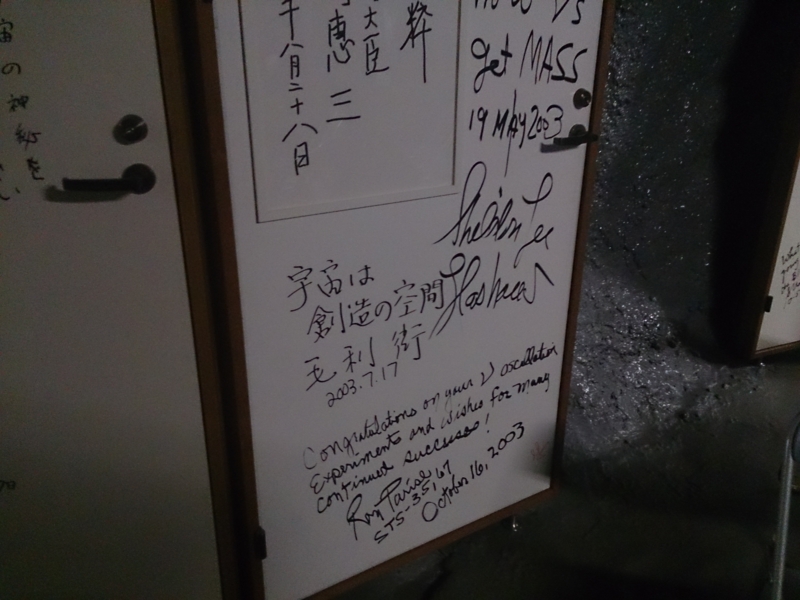 宙の神秘を
粋
大臣
恵三
八月二十八日
get MASS
19 MAY 2003
Sheldon Lee
Glashow
宇宙は
創造の空間
毛利 衛
2003.7.17
Congratulations on your ν oscillation
Experiments and wishes for many
continued success!
Ron Parise
STS-35, 67
October 16, 2003